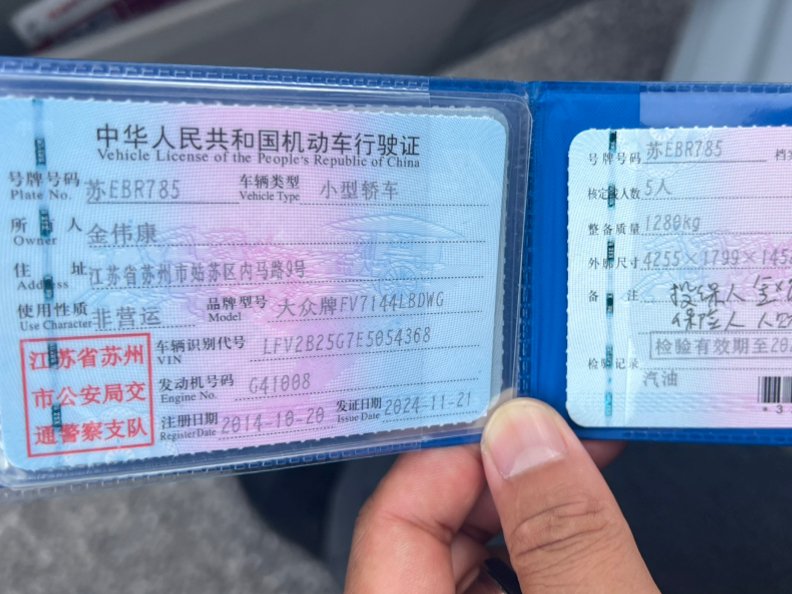 中华人民共和国机动车行驶证
Vehicle License of the People's Republic of China
号牌号码 苏EBR785 车辆类型 小型轿车
Plate No. Vehicle Type
所有人 金伟康
Owner
住址 江苏省苏州市姑苏区内马路9号
Address
使用性质 非营运 品牌型号 大众牌FV7144LBDWG
Use Character Model
江苏省苏州
市公安局交
通警察支队
车辆识别代号 LFV2B25G7E5054368
VIN
发动机号码 G41008
Engine No.
注册日期 2014-10-20 发证日期 2024-11-21
Register Date Issue Date
号牌号码 苏EBR785
核定载人数 5人
整备质量 1280kg
外廓尺寸 4255×1799×145
备注 投保人
保险人
检验记录 检验有效期至20
汽油